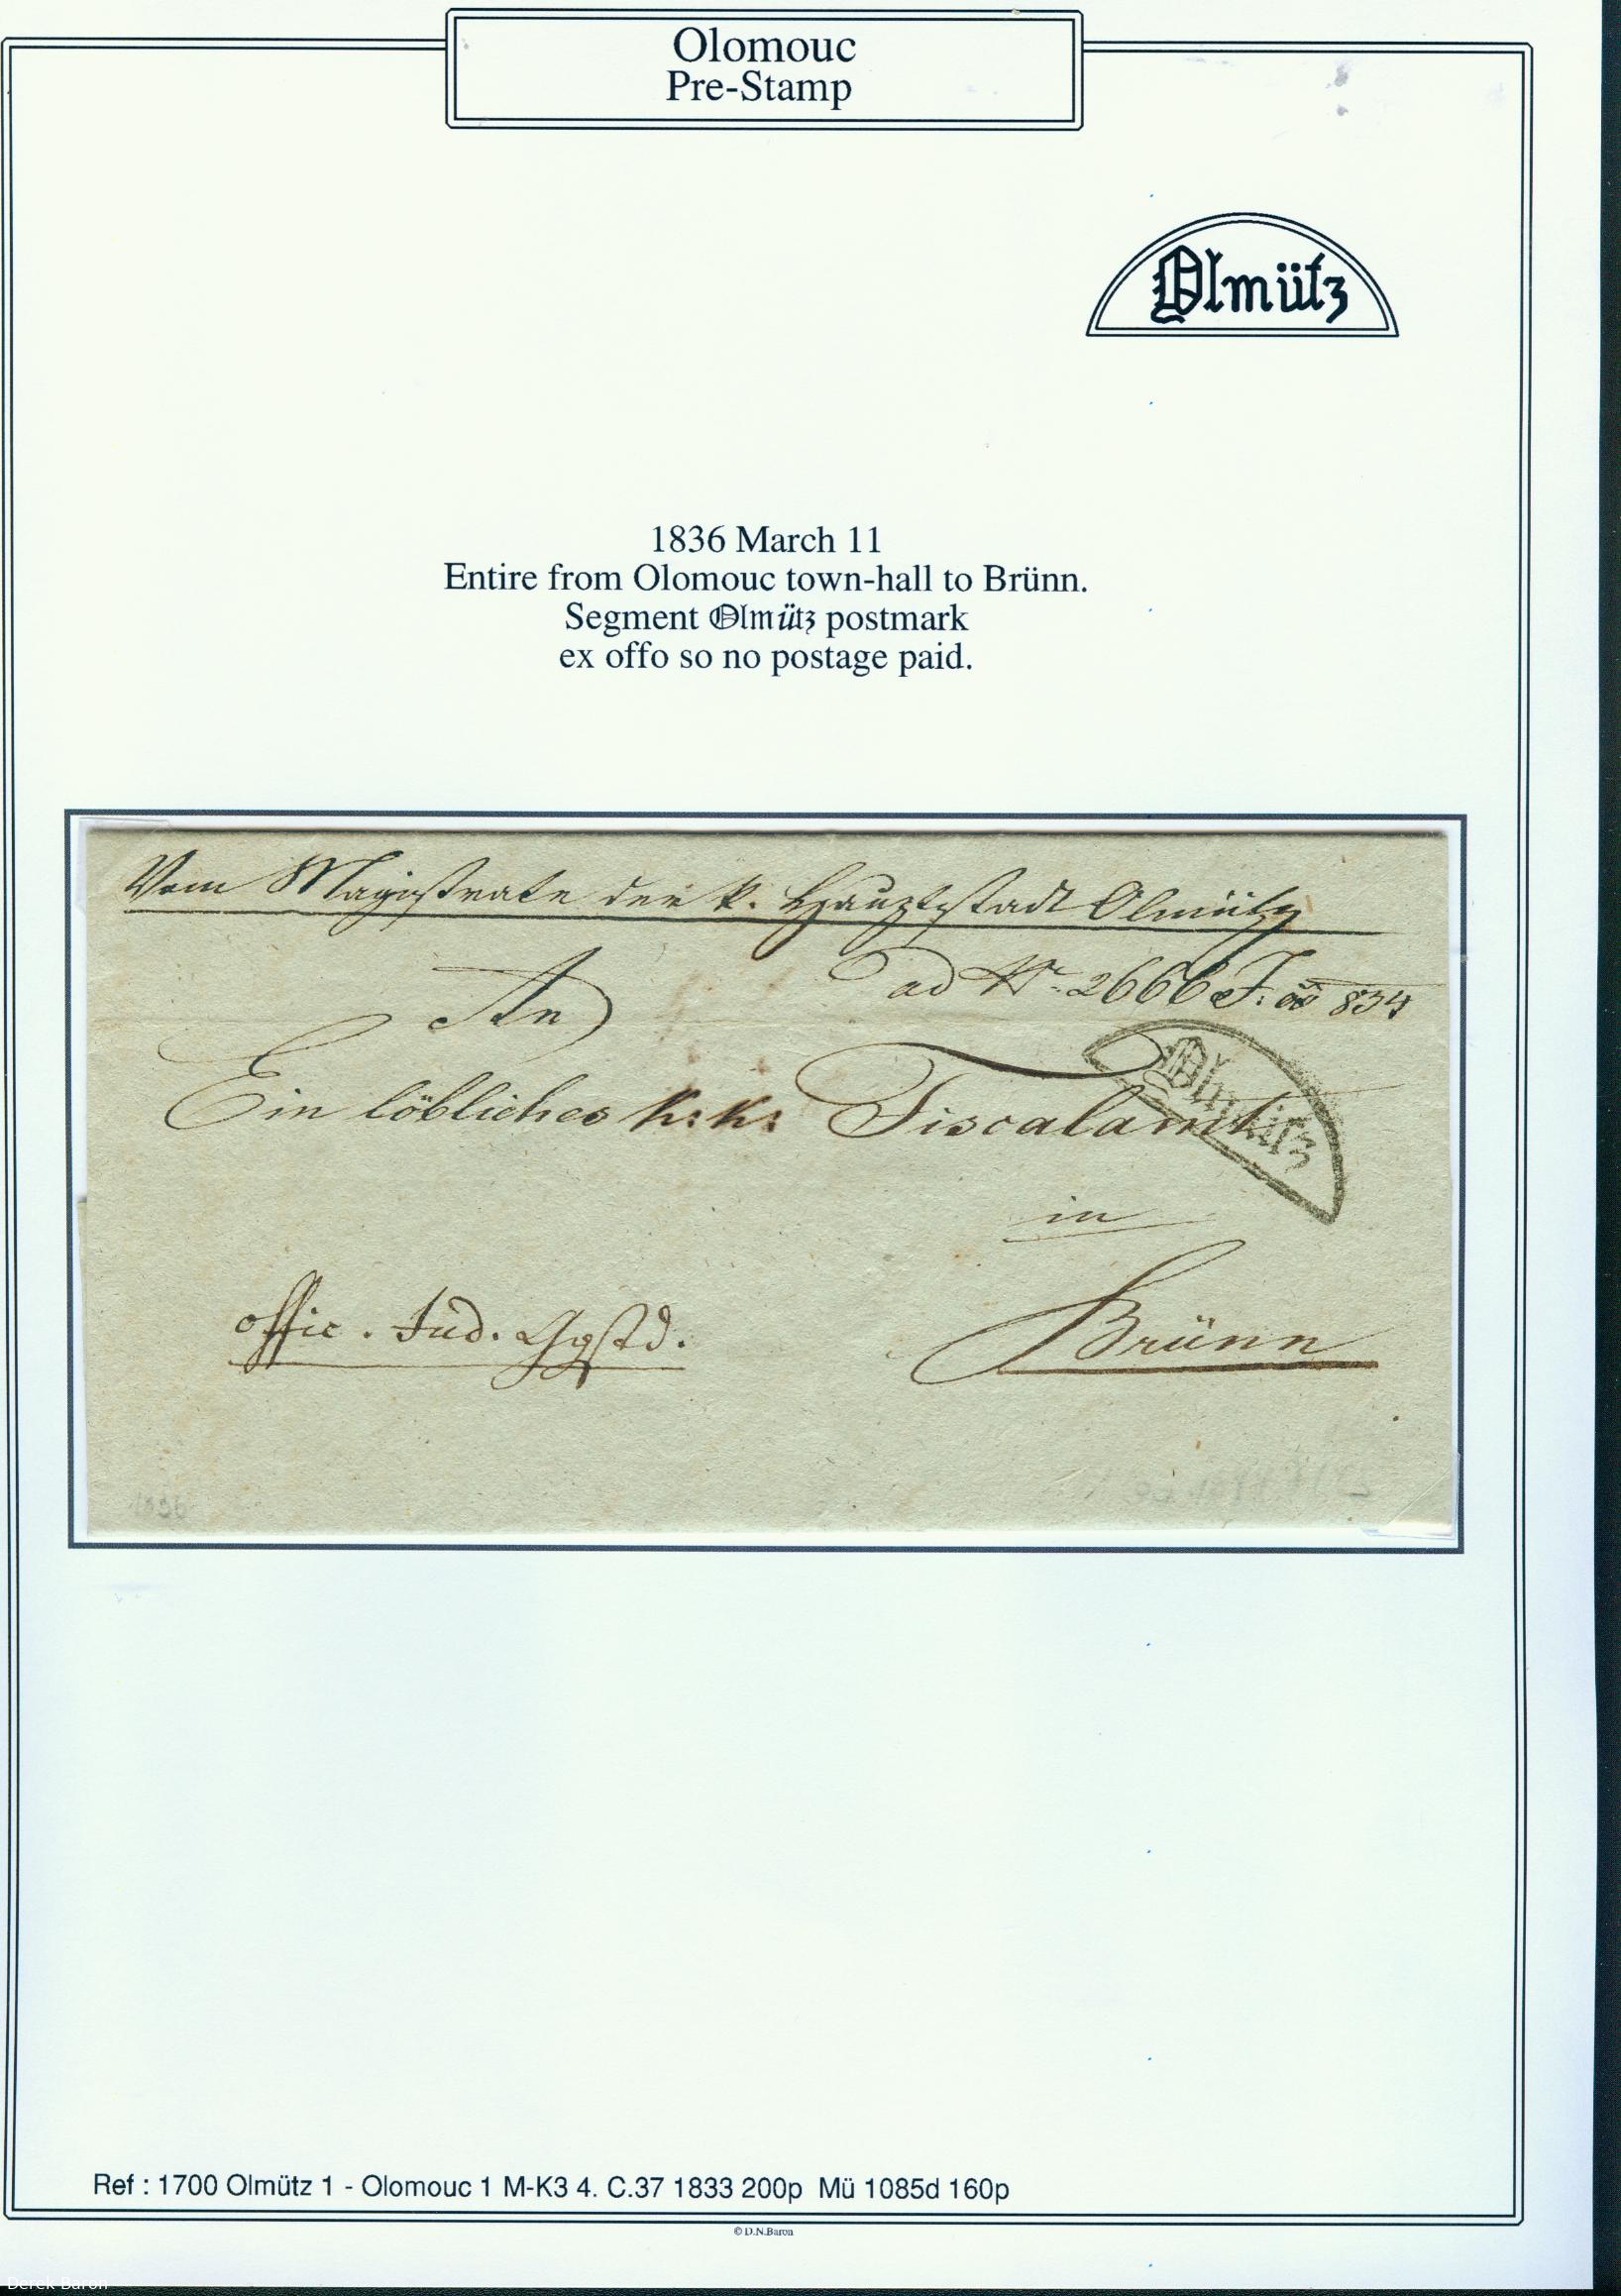 Olomouc
Pre-Stamp
Olmütz
1836 March 11
Entire from Olomouc town-hall to Brünn.
Segment Olmütz postmark
ex offo so no postage paid.
Vom Magistrate der k. Hauptstadt Olmütz
An
ad Nr. 2666 J: 834
Ein löbliches k: k: Fiscalamt
Olmütz
in
offic. Jud.
Brünn
1836
Ref : 1700 Olmütz 1 - Olomouc 1 M-K3 4. C.37 1833 200p Mü 1085d 160p
© D.N.Baron
Derek Baron